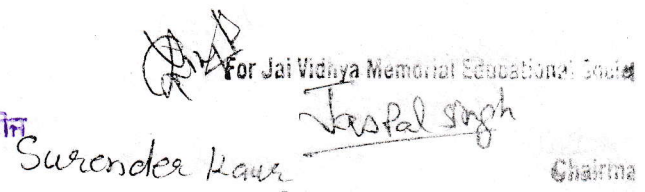 For Jai Vidhya Memorial Educational Societ
Jaspal Singh
Surender Kaur
Chairma